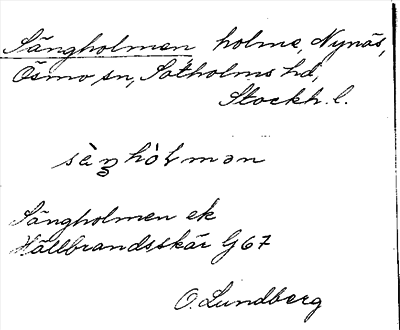 Sängholmen holme, Nynäs,
Ösmo sn, Sotholms hd,
Stockh. l.
sàŋhòlmən
Sängholmen ek
Hållbrandsskär G 67
O. Lundberg